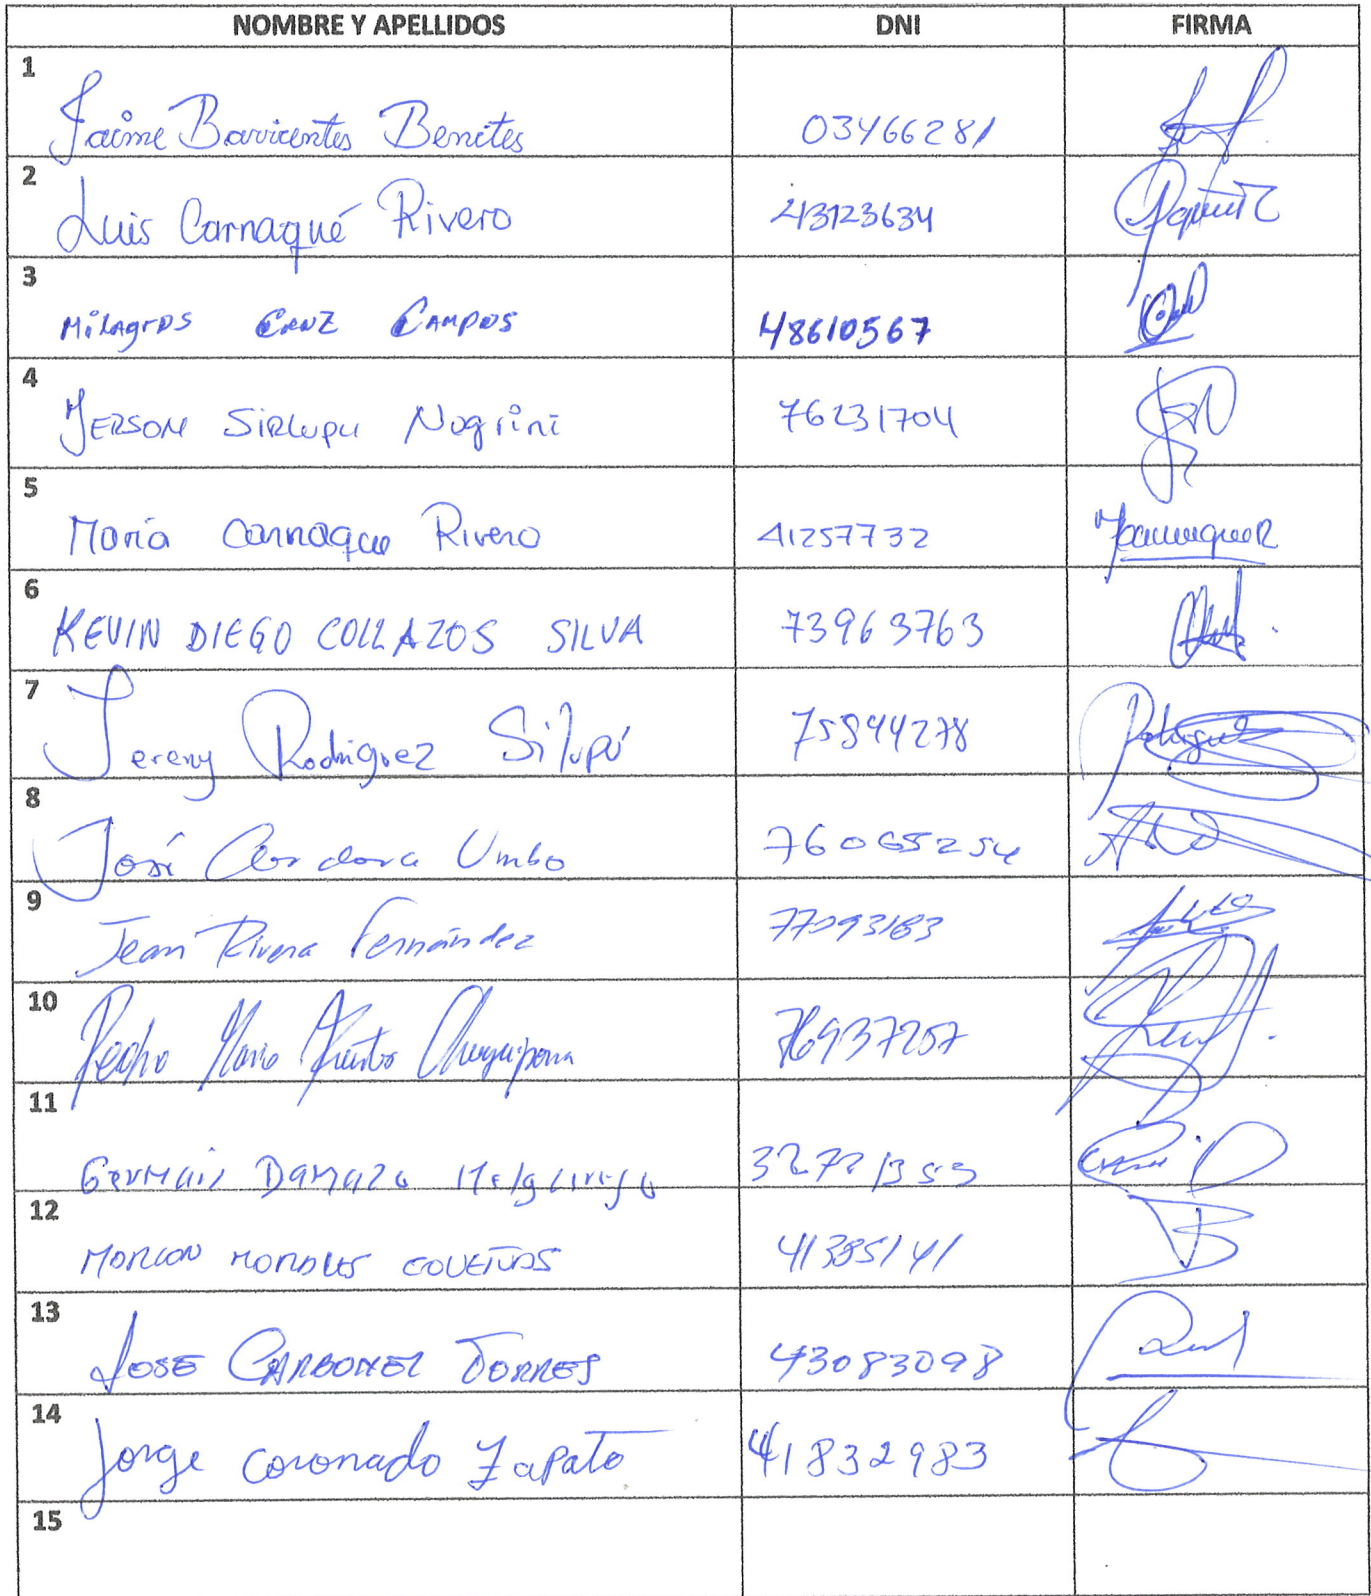 NOMBRE Y APELLIDOS DNI FIRMA
1 Jaime Barrientos Benites 03466281
2 Luis Carnaqué Rivero 43123634
3 Milagros CRUZ CAMPOS 48610567
4 JERSON SIRLUPU Nogrini 76231704
5 María Carnaque Rivero 41257732
6 KEVIN DIEGO COLLAZOS SILVA 73963763
7 Jereny Rodriguez Silupú 75844278
8 José Cordova Umbo
9 Jean Rivera Fernández 77093183
10 Pedro Mario 76937207
11 German Damazo
12 MORALES COVEÑAS 41385141
13 JOSE CARBONEL TORRES 43083098
14 Jorge Coronado Zapata 41832983
15